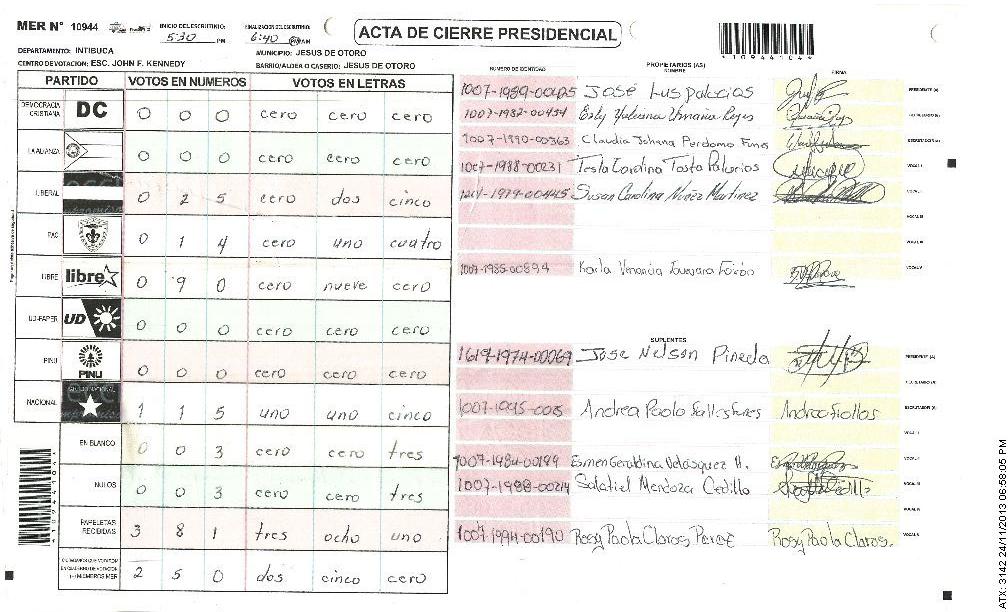 MER N° 10944
INICIO DEL ESCRUTINIO: 5:30 PM
FINALIZACION DEL ESCRUTINIO: 6:40 PM
ACTA DE CIERRE PRESIDENCIAL
*10944104*
DEPARTAMENTO: INTIBUCA
MUNICIPIO: JESUS DE OTORO
CENTRO DE VOTACION: ESC. JOHN F. KENNEDY
BARRIO/ALDEA O CASERIO: JESUS DE OTORO
PARTIDO VOTOS EN NUMEROS VOTOS EN LETRAS
DEMOCRACIA CRISTIANA DC 0 0 0 cero cero cero
LA ALIANZA 0 0 0 cero cero cero
LIBERAL 0 2 5 cero dos cinco
PAC 0 1 4 cero uno cuatro
LIBRE libre 0 9 0 cero nueve cero
UD-FAPER UD 0 0 0 cero cero cero
PINU PINU 0 0 0 cero cero cero
NACIONAL 1 1 5 uno uno cinco
EN BLANCO 0 0 3 cero cero tres
NULOS 0 0 3 cero cero tres
PAPELETAS RECIBIDAS 3 8 1 tres ocho uno
CIUDADANOS QUE VOTARON EN CUADERNO DE VOTACION (+) MIEMBROS MER 2 5 0 dos cinco cero
NUMERO DE IDENTIDAD PROPIETARIOS (AS) NOMBRE FIRMA
José Luspalacios PRESIDENTE (A)
1007-1987-00454 Esly Yuliana Umaña Reyes
1007-1990-00363 Claudia Johana Perdomo Funes ESCRUTADOR (A)
1007-1988-00231 VOCAL I
1214-1979-00445 Susan Carolina Nuñez Martinez VOCAL II
VOCAL III
VOCAL IV
1007-1985-00894 Karla VOCAL V
SUPLENTES
1619-1974-00069 Jose Nelson Pineda PRESIDENTE (A)
SECRETARIO (A)
Andrea Paola ESCRUTADOR (A)
VOCAL I
1007-1984-00199 Esmen Geraldina Velásquez H. VOCAL II
1007-1988-00214 Salatiel Mendoza Cedillo VOCAL III
VOCAL IV
1007-1994-00190 Rosy Paola Claros Perez Rosy Paola Claros. VOCAL V
*10944104*
ATX: 3142 24/11/2013 06:58:05 PM